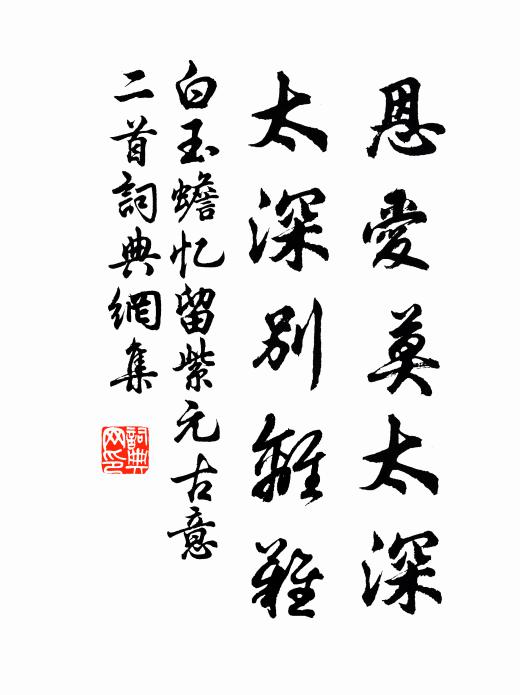 恩愛莫太深
太深別離難
白玉蟾忆留紫元古意
二首詞典網集
詞典
网印